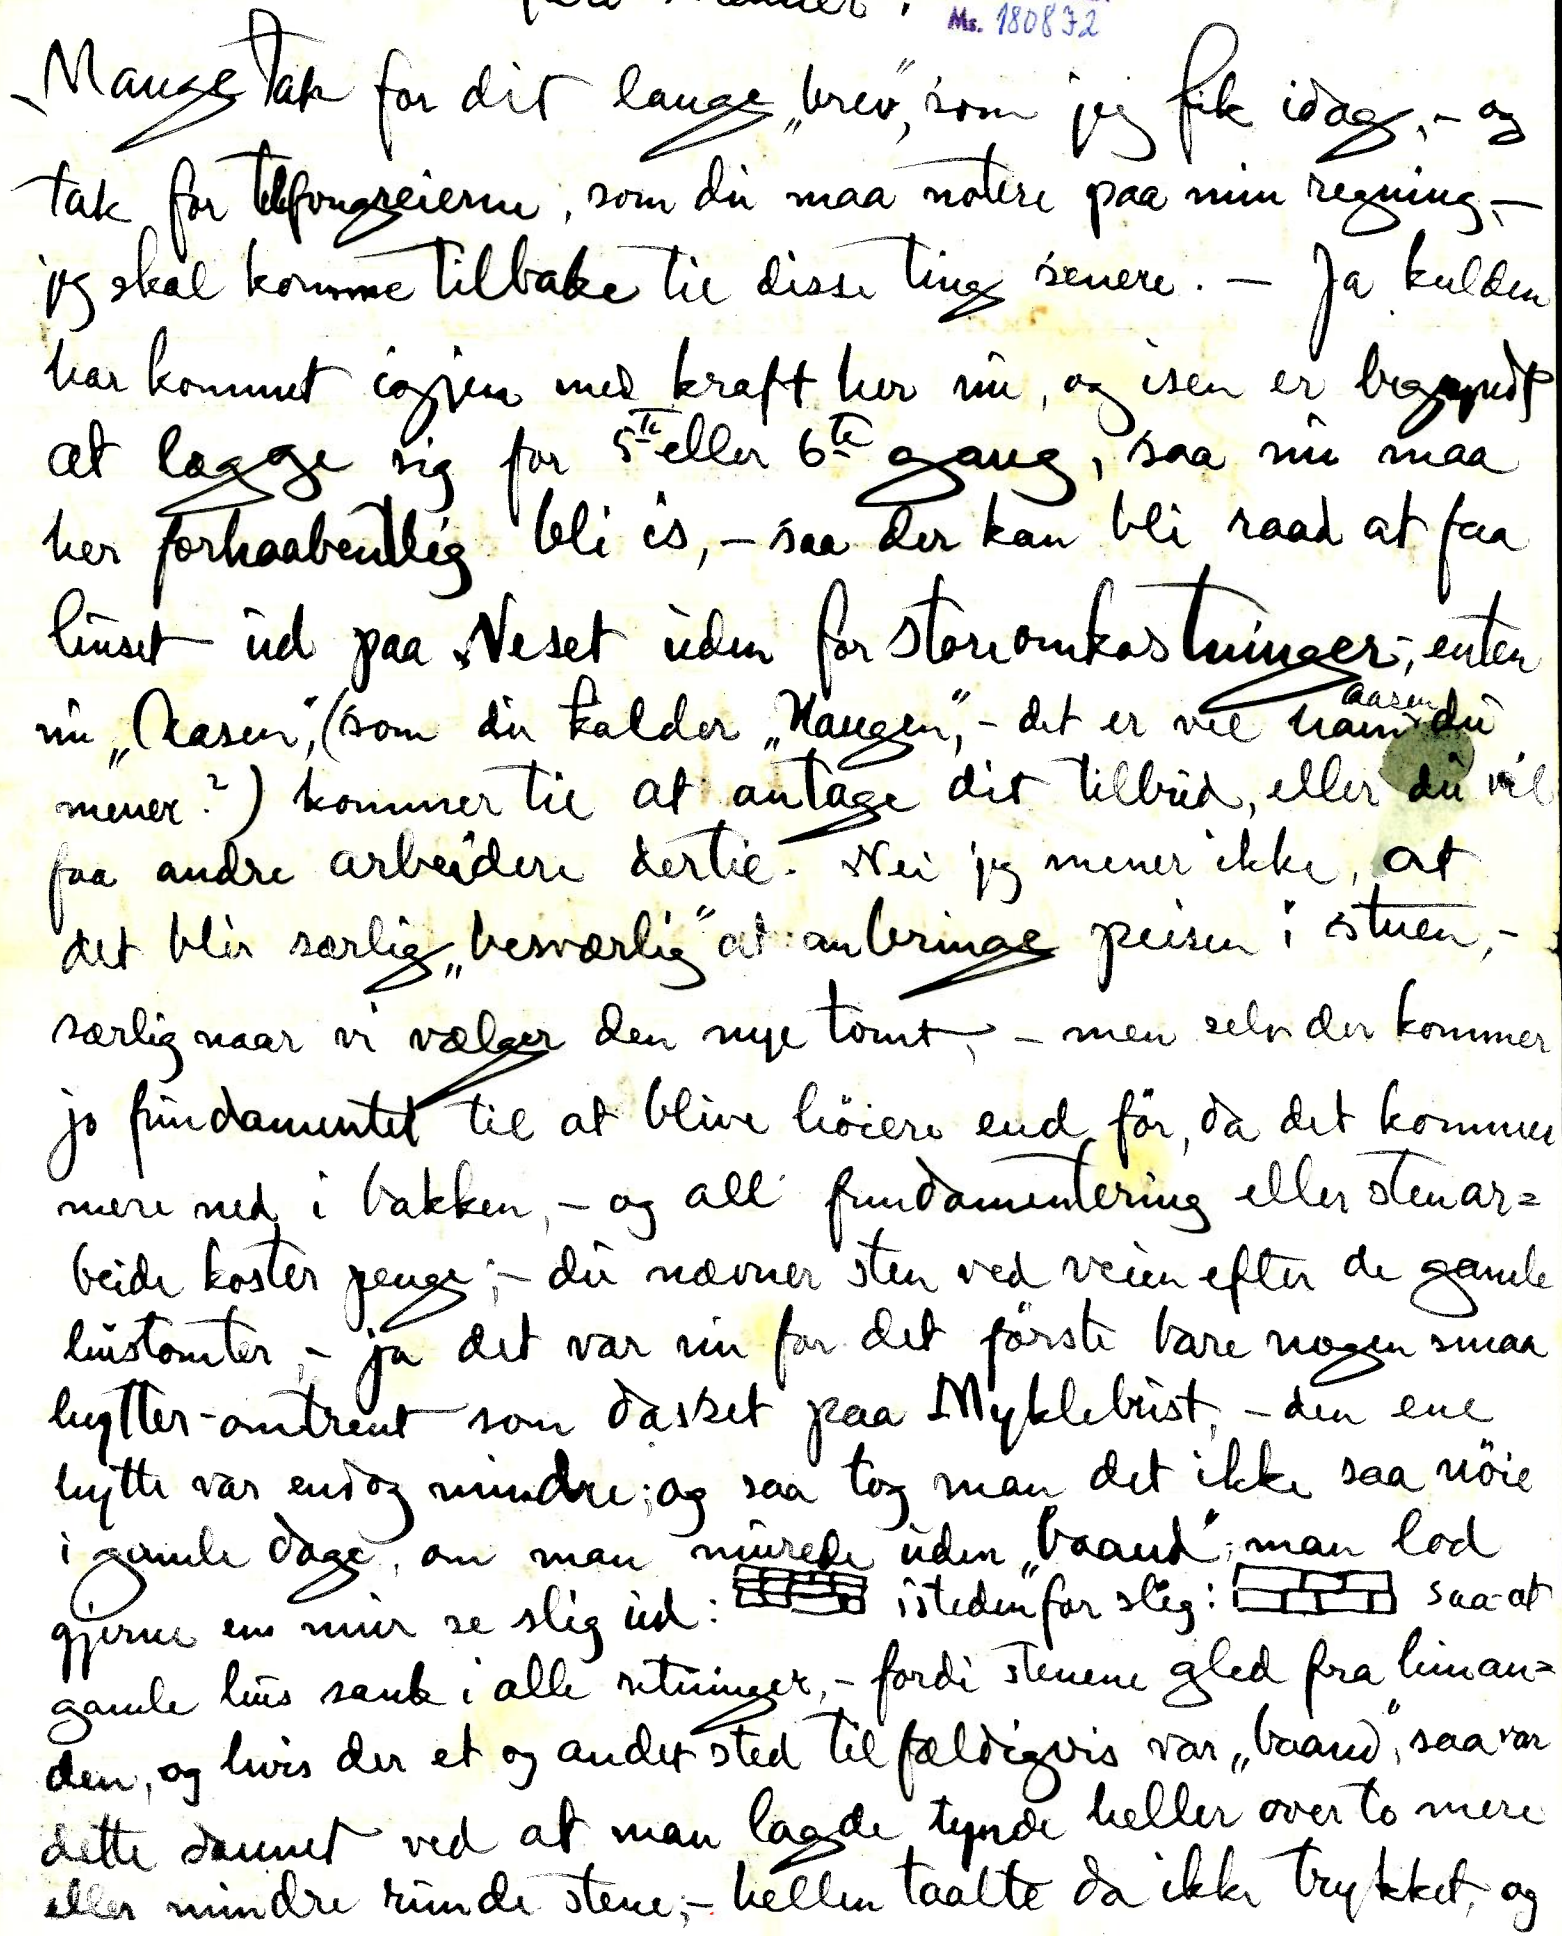 Ms. 180872
Mange Tak for dit lange „brev“, som jeg fik idag, – og
tak for telefongreierne, som du maa notere paa min regning, –
jeg skal komme tilbake til disse ting senere. – Ja kulden
har kommet igjen med kraft her nu, og isen er begyndt
at lægge sig for 5te eller 6te gang, saa nu maa
her forhaabentlig bli is, – saa der kan bli raad at faa
huset ud paa Neset uden for store omkostninger, enten
nu „Aasen“, (som du kalder „Haugen“, – det er vel ham aasen du
mener?) kommer til at antage dit tilbud, eller du vil
faa andre arbeidere dertil. Nei jeg mener ikke, at
det blir særlig „besværlig“ at anbringe peisen i stuen, –
særlig naar vi vælger den nye tomt, – men selv der kommer
jo fundamentet til at blive höiere end för, da det kommer
mere ned i bakken, – og all fundamentering eller stenar=
beide koster penge; – du nævner sten ved veien efter de gamle
hustomter, – ja det var nu for det förste bare nogen smaa
hytter – omtrent som dasset paa Myklebust, – den ene
hytte var endog mindre; og saa tog man det ikke saa nöie
i gamle dage, om man murede uden „baand“, man lod
gjerne en mur se slig ud: istedenfor slig: saa at
gamle hus sank i alle retninger, – fordi stenene gled fra hinan=
den, og hvis der et og andet sted tilfældigvis var „baand“, saa var
dette dannet ved at man lagde tynde heller over to mere
eller mindre runde stene, – hellen taalte da ikke trykket, og